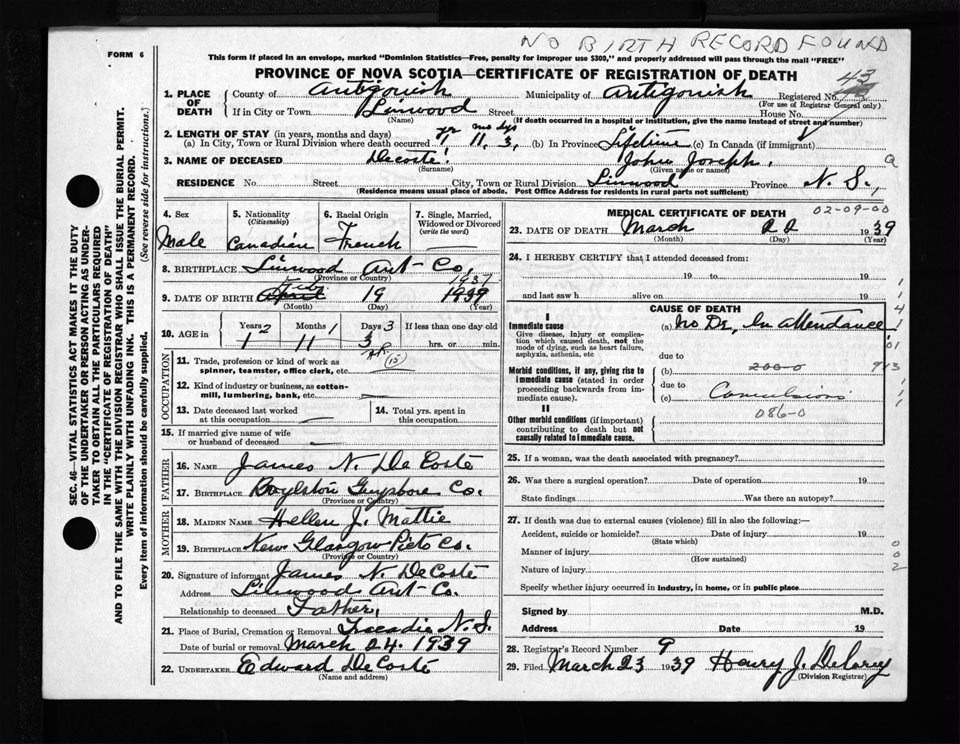 NO BIRTH RECORD FOUND
FORM 6
This form if placed in an envelope, marked "Dominion Statistics—Free, penalty for improper use $300," and properly addressed will pass through the mail "FREE"
PROVINCE OF NOVA SCOTIA—CERTIFICATE OF REGISTRATION OF DEATH
SEC. 46—VITAL STATISTICS ACT MAKES IT THE DUTY
OF THE UNDERTAKER OR PERSON ACTING AS UNDER-
TAKER TO OBTAIN ALL THE PARTICULARS REQUIRED
IN THE "CERTIFICATE OF REGISTRATION OF DEATH"
AND TO FILE THE SAME WITH THE DIVISION REGISTRAR WHO SHALL ISSUE THE BURIAL PERMIT.
WRITE PLAINLY WITH UNFADING INK. THIS IS A PERMANENT RECORD.
Every item of information should be carefully supplied. (See reverse side for instructions.)
1. PLACE OF DEATH County of Antigonish Municipality of Antigonish Registered No. 43
(For use of Registrar General only)
If in City or Town Linwood Street House No.
(Name) (If death occurred in a hospital or institution, give the name instead of street and number)
2. LENGTH OF STAY (in years, months and days) yr mos dys
(a) In City, Town or Rural Division where death occurred 1, 11, 3, (b) In Province Lifetime (c) In Canada (if immigrant)
3. NAME OF DECEASED Decoste John Joseph,
(Surname) (Given name or names)
RESIDENCE No. Street City, Town or Rural Division Linwood Province N. S.,
(Residence means usual place of abode. Post Office Address for residents in rural parts not sufficient)
4. Sex 5. Nationality (Citizenship) 6. Racial Origin 7. Single, Married, Widowed or Divorced (write the word)
Male Canadian French
8. BIRTHPLACE Linwood Ant Co,
(Province or Country)
Feb 1937
9. DATE OF BIRTH April 19 1939
(Month) (Day) (Year)
10. AGE in Years 2 Months 1 Days 3 If less than one day old
1 11 3 hrs. or min.
OCCUPATION
11. Trade, profession or kind of work as
spinner, teamster, office clerk, etc. (15)
12. Kind of industry or business, as cotton-
mill, lumbering, bank, etc.
13. Date deceased last worked
at this occupation
14. Total yrs. spent in
this occupation
15. If married give name of wife
or husband of deceased
FATHER
16. NAME James N. DeCoste
17. BIRTHPLACE Boylston Guysboro Co.
(Province or Country)
MOTHER
18. MAIDEN NAME Hellen J. Mattie
19. BIRTHPLACE New Glasgow Picto Co.
(Province or Country)
20. Signature of informant James N. DeCoste
Address Linwood Ant Co.
Relationship to deceased Father,
21. Place of Burial, Cremation or Removal Tracadie N. S.
Date of burial or removal March 24. 1939
22. UNDERTAKER Edward DeCoste
(Name and address)
MEDICAL CERTIFICATE OF DEATH 02-09-00
23. DATE OF DEATH March 22 1939
(Month) (Day) (Year)
24. I HEREBY CERTIFY that I attended deceased from:
19 to 19
and last saw h alive on 19
CAUSE OF DEATH
I
Immediate cause (a) No Dr., In attendance
Give disease, injury or complica-
tion which caused death, not the
mode of dying, such as heart failure,
asphyxia, asthenia, etc
due to
Morbid conditions, if any, giving rise to (b) 200-0
immediate cause (stated in order due to
proceeding backwards from im- (c) Convulsions
mediate cause).
II 086-0
Other morbid conditions (if important)
contributing to death but not
causally related to immediate cause.
25. If a woman, was the death associated with pregnancy?
26. Was there a surgical operation? Date of operation 19
State findings Was there an autopsy?
27. If death was due to external causes (violence) fill in also the following:—
Accident, suicide or homicide? Date of injury 19
(State which)
Manner of injury
(How sustained)
Nature of injury
Specify whether injury occurred in industry, in home, or in public place
Signed by M.D.
Address Date 19
28. Registrar's Record Number 9
29. Filed March 23 1939 Henry J. DeLorey
(Division Registrar)